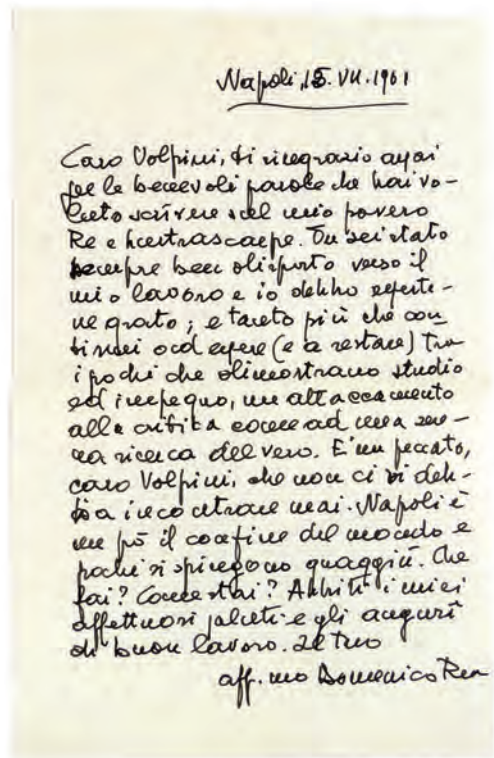 Napoli, 15. VII. 1961
Caro Volpini, ti ringrazio assai
per le benevoli parole che hai vo-
luto scrivere sul mio povero
Re e lustrascarpe. Tu sei stato
sempre ben disposto verso il
mio lavoro e io debbo esserte-
ne grato; e tanto più che con
tinui ad essere (e a restare) tra
i pochi che dimostrano studio
ed impegno, un attaccamento
alla critica come ad una
ricerca del vero. E' un peccato,
caro Volpini, che non ci si deb-
ba incontrare mai. Napoli è
un pò il confine del mondo e
pochi si spingono quaggiù. Che
fai? Come stai? Abbiti i miei
affettuosi saluti e gli auguri
di buon lavoro. Il tuo
aff.mo Domenico Rea